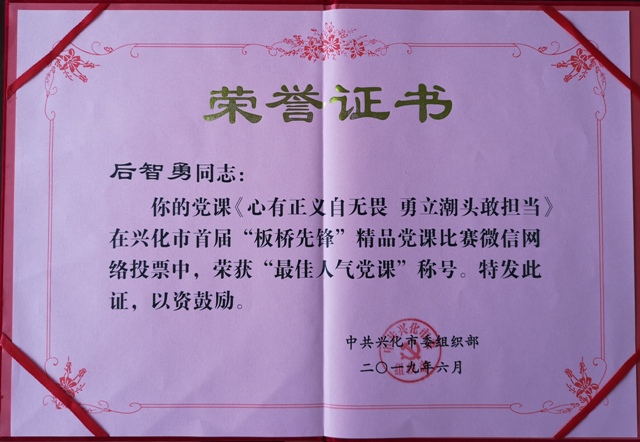 荣誉证书
后智勇同志：
你的党课《心有正义自无畏 勇立潮头敢担当》
在兴化市首届“板桥先锋”精品党课比赛微信网
络投票中，荣获“最佳人气党课”称号。特发此
证，以资鼓励。
中共兴化市委组织部
二〇一九年六月